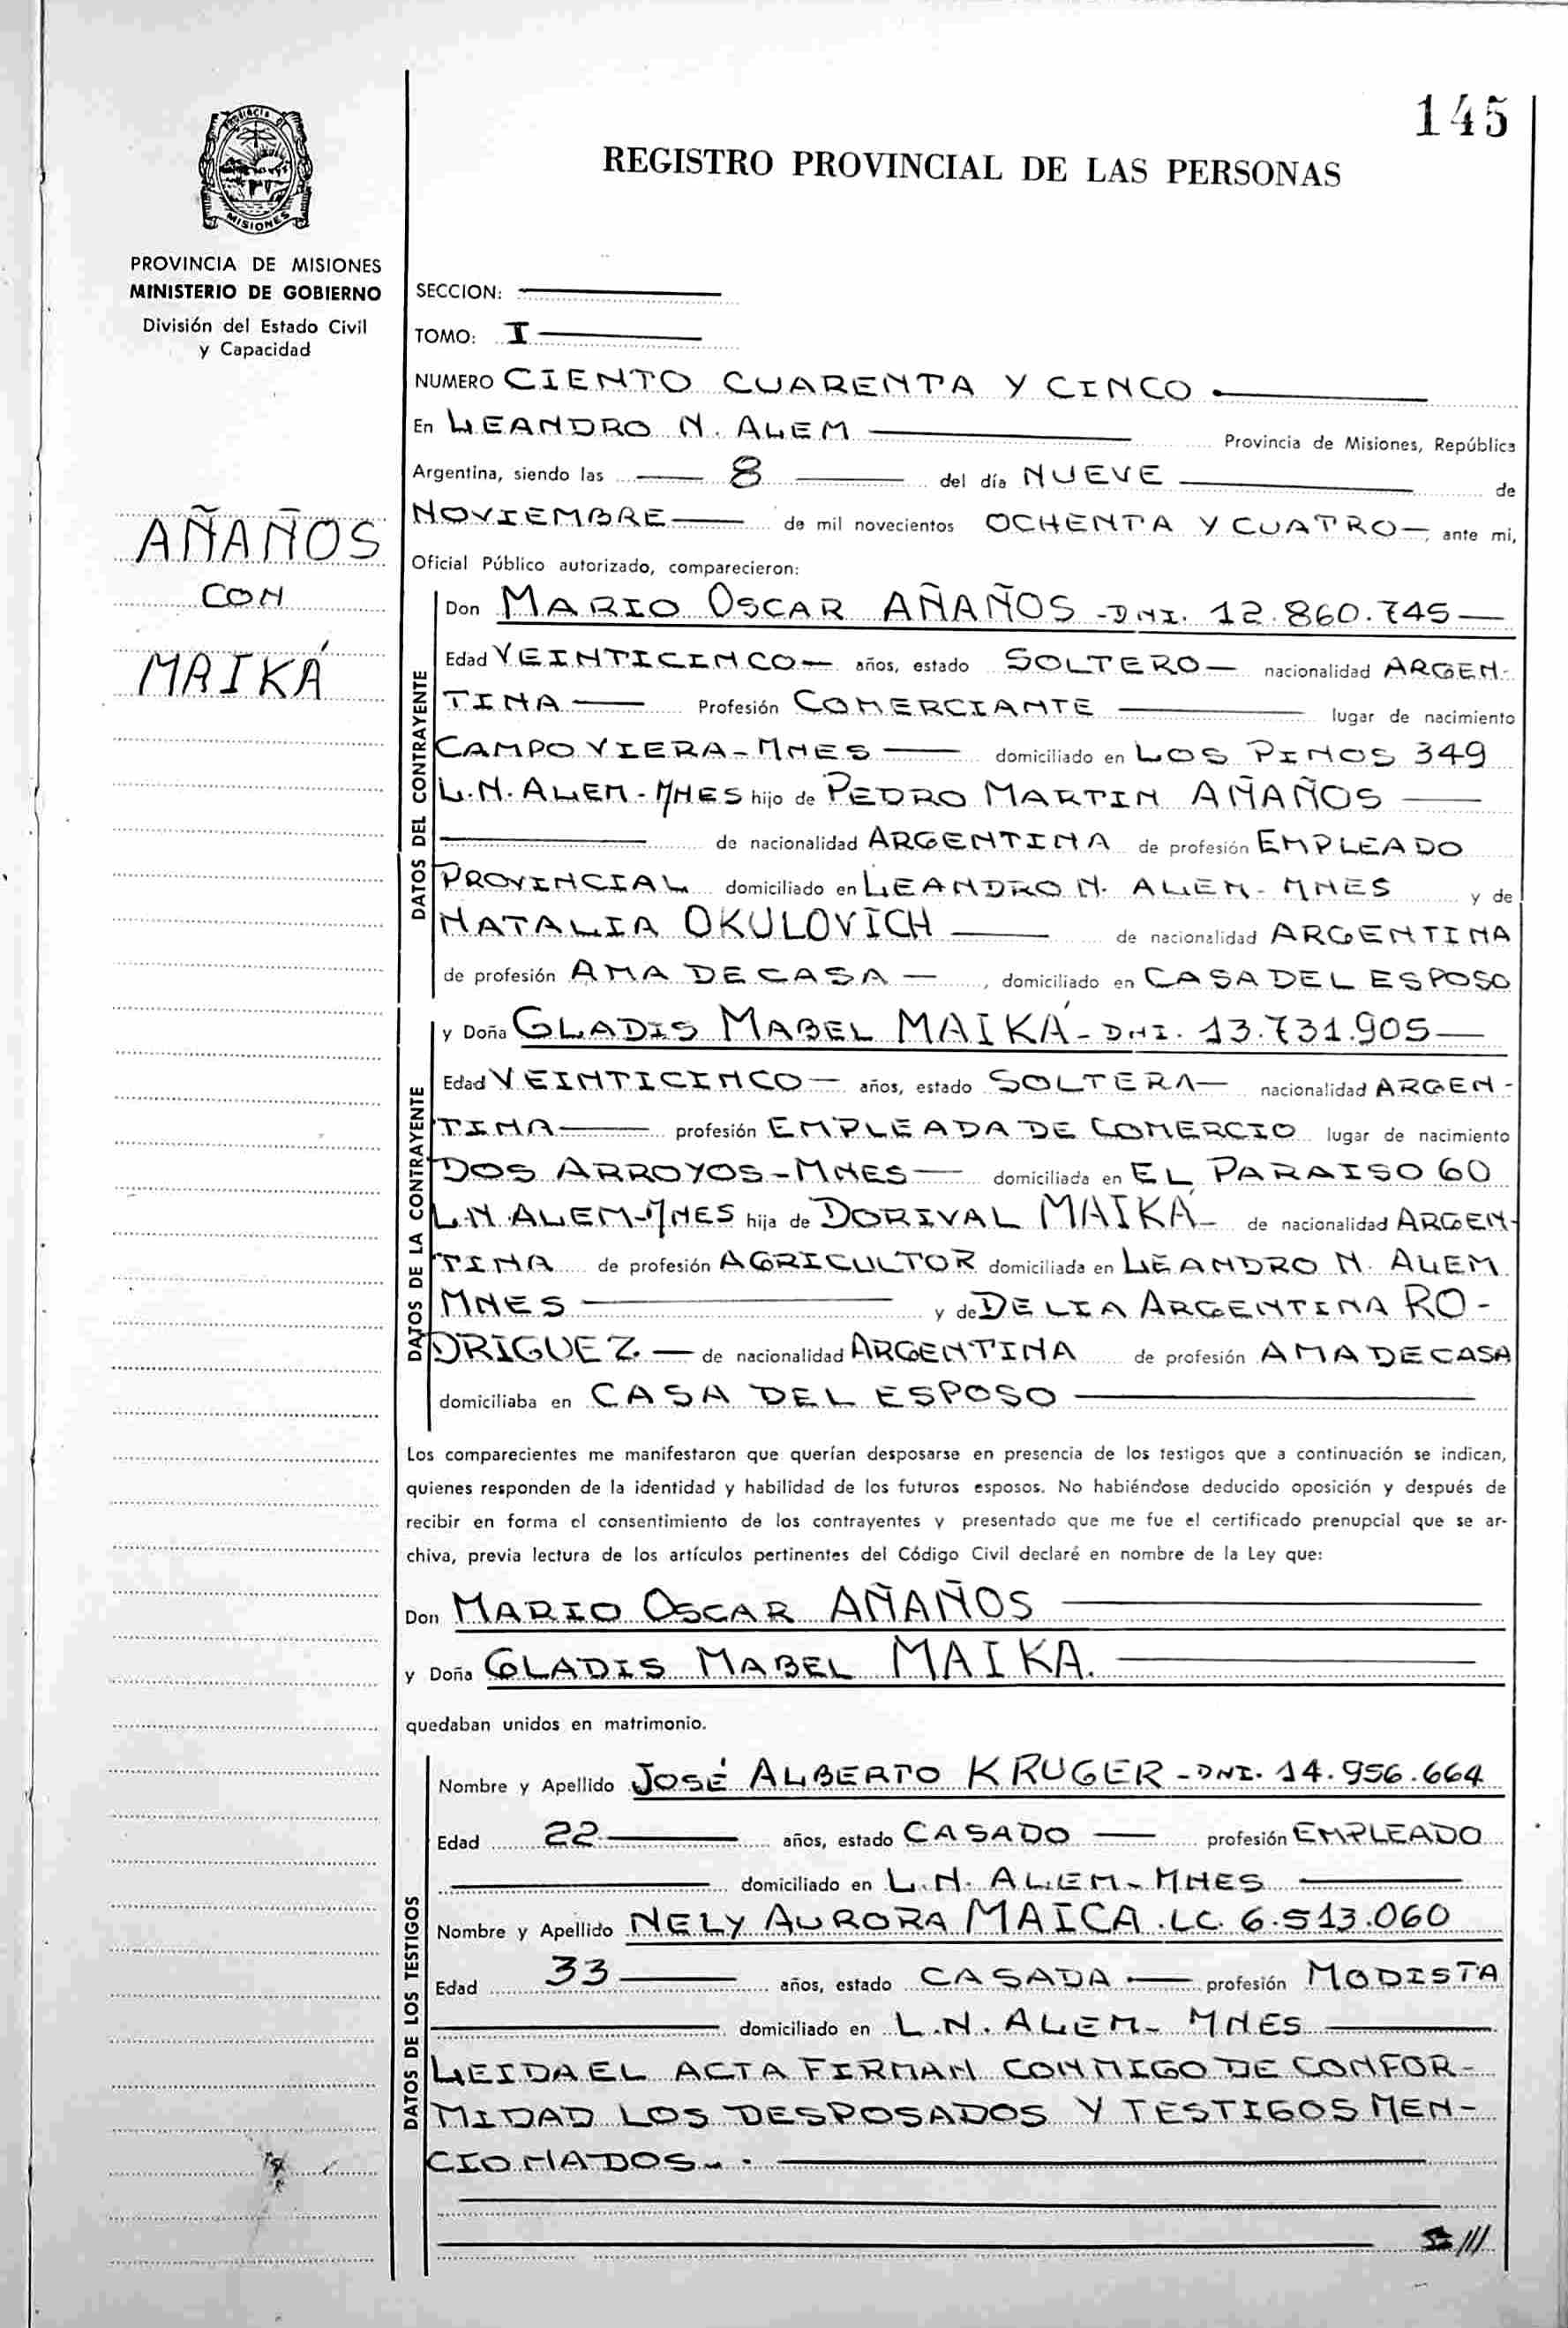 145
REGISTRO PROVINCIAL DE LAS PERSONAS
Provincia de
MISIONES
PROVINCIA DE MISIONES
MINISTERIO DE GOBIERNO
División del Estado Civil
y Capacidad
AÑAÑOS
CON
MAIKÁ
SECCION:
TOMO: I
NUMERO CIENTO CUARENTA Y CINCO
En LEANDRO N. ALEM Provincia de Misiones, República
Argentina, siendo las 8 del día NUEVE de
NOVIEMBRE de mil novecientos OCHENTA Y CUATRO, ante mi,
Oficial Público autorizado, comparecieron:
DATOS DEL CONTRAYENTE
Don MARIO OSCAR AÑAÑOS - DNI. 12.860.745
Edad VEINTICINCO años, estado SOLTERO nacionalidad ARGEN-
TINA Profesión COMERCIANTE lugar de nacimiento
CAMPO VIERA - MNES domiciliado en LOS PINOS 349
L.N. ALEM - MNES hijo de PEDRO MARTIN AÑAÑOS
de nacionalidad ARGENTINA de profesión EMPLEADO
PROVINCIAL domiciliado en LEANDRO N. ALEM - MNES y de
NATALIA OKULOVICH de nacionalidad ARGENTINA
de profesión AMA DE CASA, domiciliado en CASA DEL ESPOSO
DATOS DE LA CONTRAYENTE
y Doña GLADIS MABEL MAIKÁ - DNI. 13.731.905
Edad VEINTICINCO años, estado SOLTERA nacionalidad ARGEN-
TINA profesión EMPLEADA DE COMERCIO lugar de nacimiento
DOS ARROYOS - MNES domiciliada en EL PARAISO 60
L.N. ALEM - MNES hija de DORIVAL MAIKÁ de nacionalidad ARGEN-
TINA de profesión AGRICULTOR domiciliada en LEANDRO N. ALEM
MNES y de DELIA ARGENTINA RO-
DRIGUEZ. de nacionalidad ARGENTINA de profesión AMA DE CASA
domiciliaba en CASA DEL ESPOSO
Los comparecientes me manifestaron que querían desposarse en presencia de los testigos que a continuación se indican,
quienes responden de la identidad y habilidad de los futuros esposos. No habiéndose deducido oposición y después de
recibir en forma el consentimiento de los contrayentes y presentado que me fue el certificado prenupcial que se ar-
chiva, previa lectura de los artículos pertinentes del Código Civil declaré en nombre de la Ley que:
Don MARIO OSCAR AÑAÑOS
y Doña GLADIS MABEL MAIKA.
quedaban unidos en matrimonio.
DATOS DE LOS TESTIGOS
Nombre y Apellido JOSÉ ALBERTO KRUGER - DNI. 14.956.664
Edad 22 años, estado CASADO profesión EMPLEADO
domiciliado en L.N. ALEM - MNES
Nombre y Apellido NELY AURORA MAICA. LC. 6.513.060
Edad 33 años, estado CASADA profesión MODISTA
domiciliado en L.N. ALEM - MNES
LEIDA EL ACTA FIRMAN CONMIGO DE CONFOR-
MIDAD LOS DESPOSADOS Y TESTIGOS MEN-
CIONADOS.